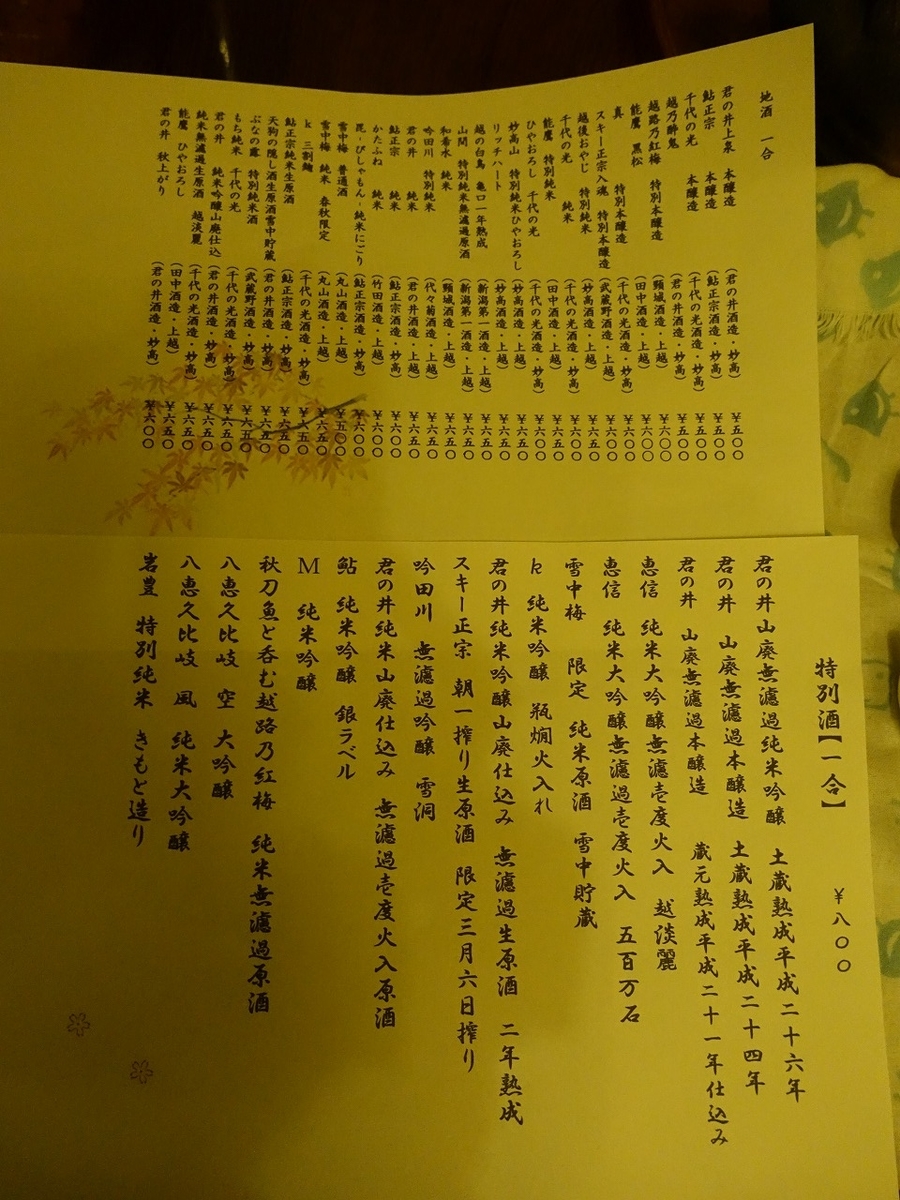 地酒 一合
君の井上泉 本醸造 (君の井酒造・妙高) ¥五五〇
鮎正宗 本醸造 (鮎正宗酒造・妙高) ¥五五〇
千代の光 本醸造 (千代の光酒造・妙高) ¥五五〇
越乃酔鬼 (君の井酒造・妙高)
越路乃紅梅 特別本醸造 (頸城酒造・上越)
能鷹 黒松 (田中酒造・上越)
真 特別本醸造 (千代の光酒造・妙高)
スキー正宗入魂 特別本醸造 (武蔵野酒造・上越)
越後おやじ 特別純米 (妙高酒造・上越)
千代の光 純米 (千代の光酒造・妙高)
能鷹 特別純米 (田中酒造・上越) ¥六五〇
ひやおろし 千代の光 (千代の光酒造・妙高) ¥六五〇
妙高山 特別純米ひやおろし (妙高酒造・上越) ¥六五〇
リッチハート (妙高酒造・上越) ¥六五〇
越の白鳥 亀口一年熟成 (新潟第一酒造・上越) ¥六五〇
山間 特別純米無濾過原酒 (新潟第一酒造・上越) ¥六五〇
和希水 純米 (頸城酒造・上越) ¥六五〇
吟田川 特別純米 (代々菊酒造・上越) ¥六五〇
君の井 純米 (君の井酒造・妙高) ¥六五〇
鮎正宗 純米 (鮎正宗酒造・妙高) ¥六〇〇
かたふね 純米 (竹田酒造・上越) ¥六〇〇
毘・びしゃもん・純米にごり (鮎正宗酒造・妙高) ¥六〇〇
雪中梅 普通酒 (丸山酒造・上越) ¥五〇〇
雪中梅 純米 春秋限定 (丸山酒造・上越) ¥六五〇
k 三割麹 (千代の光酒造・妙高) ¥六五〇
鮎正宗純米生原酒 (鮎正宗酒造・妙高) ¥六五〇
天狗の隠し酒生原酒雪中貯蔵 (君の井酒造・妙高) ¥六五〇
ぶなの露 特別純米酒 (武蔵野酒造・上越) ¥六五〇
もち純米 千代の光 (千代の光酒造・妙高) ¥六五〇
君の井 純米吟醸山廃仕込 (君の井酒造・妙高) ¥六五〇
純米無濾過生原酒 越淡麗 (千代の光酒造・妙高) ¥六五〇
能鷹 ひやおろし (田中酒造・上越) ¥六五〇
君の井 秋上がり (君の井酒造・妙高) ¥六〇〇
特別酒【一合】 ¥八〇〇
君の井山廃無濾過純米吟醸 土蔵熟成平成二十六年
君の井 山廃無濾過本醸造 土蔵熟成平成二十四年
君の井 山廃無濾過本醸造 蔵元熟成平成二十一年仕込み
恵信 純米大吟醸無濾過壱度火入 越淡麗
恵信 純米大吟醸無濾過壱度火入 五百万石
雪中梅 限定 純米原酒 雪中貯蔵
k 純米吟醸 瓶燗火入れ
君の井純米吟醸山廃仕込み 無濾過生原酒 二年熟成
スキー正宗 朝一搾り生原酒 限定三月六日搾り
吟田川 無濾過吟醸 雪洞
君の井純米山廃仕込み 無濾過壱度火入原酒
鮎 純米吟醸 銀ラベル
M 純米吟醸
秋刀魚と呑む越路乃紅梅 純米無濾過原酒
八恵久比岐 空 大吟醸
八恵久比岐 風 純米大吟醸
岩豊 特別純米 きもと造り